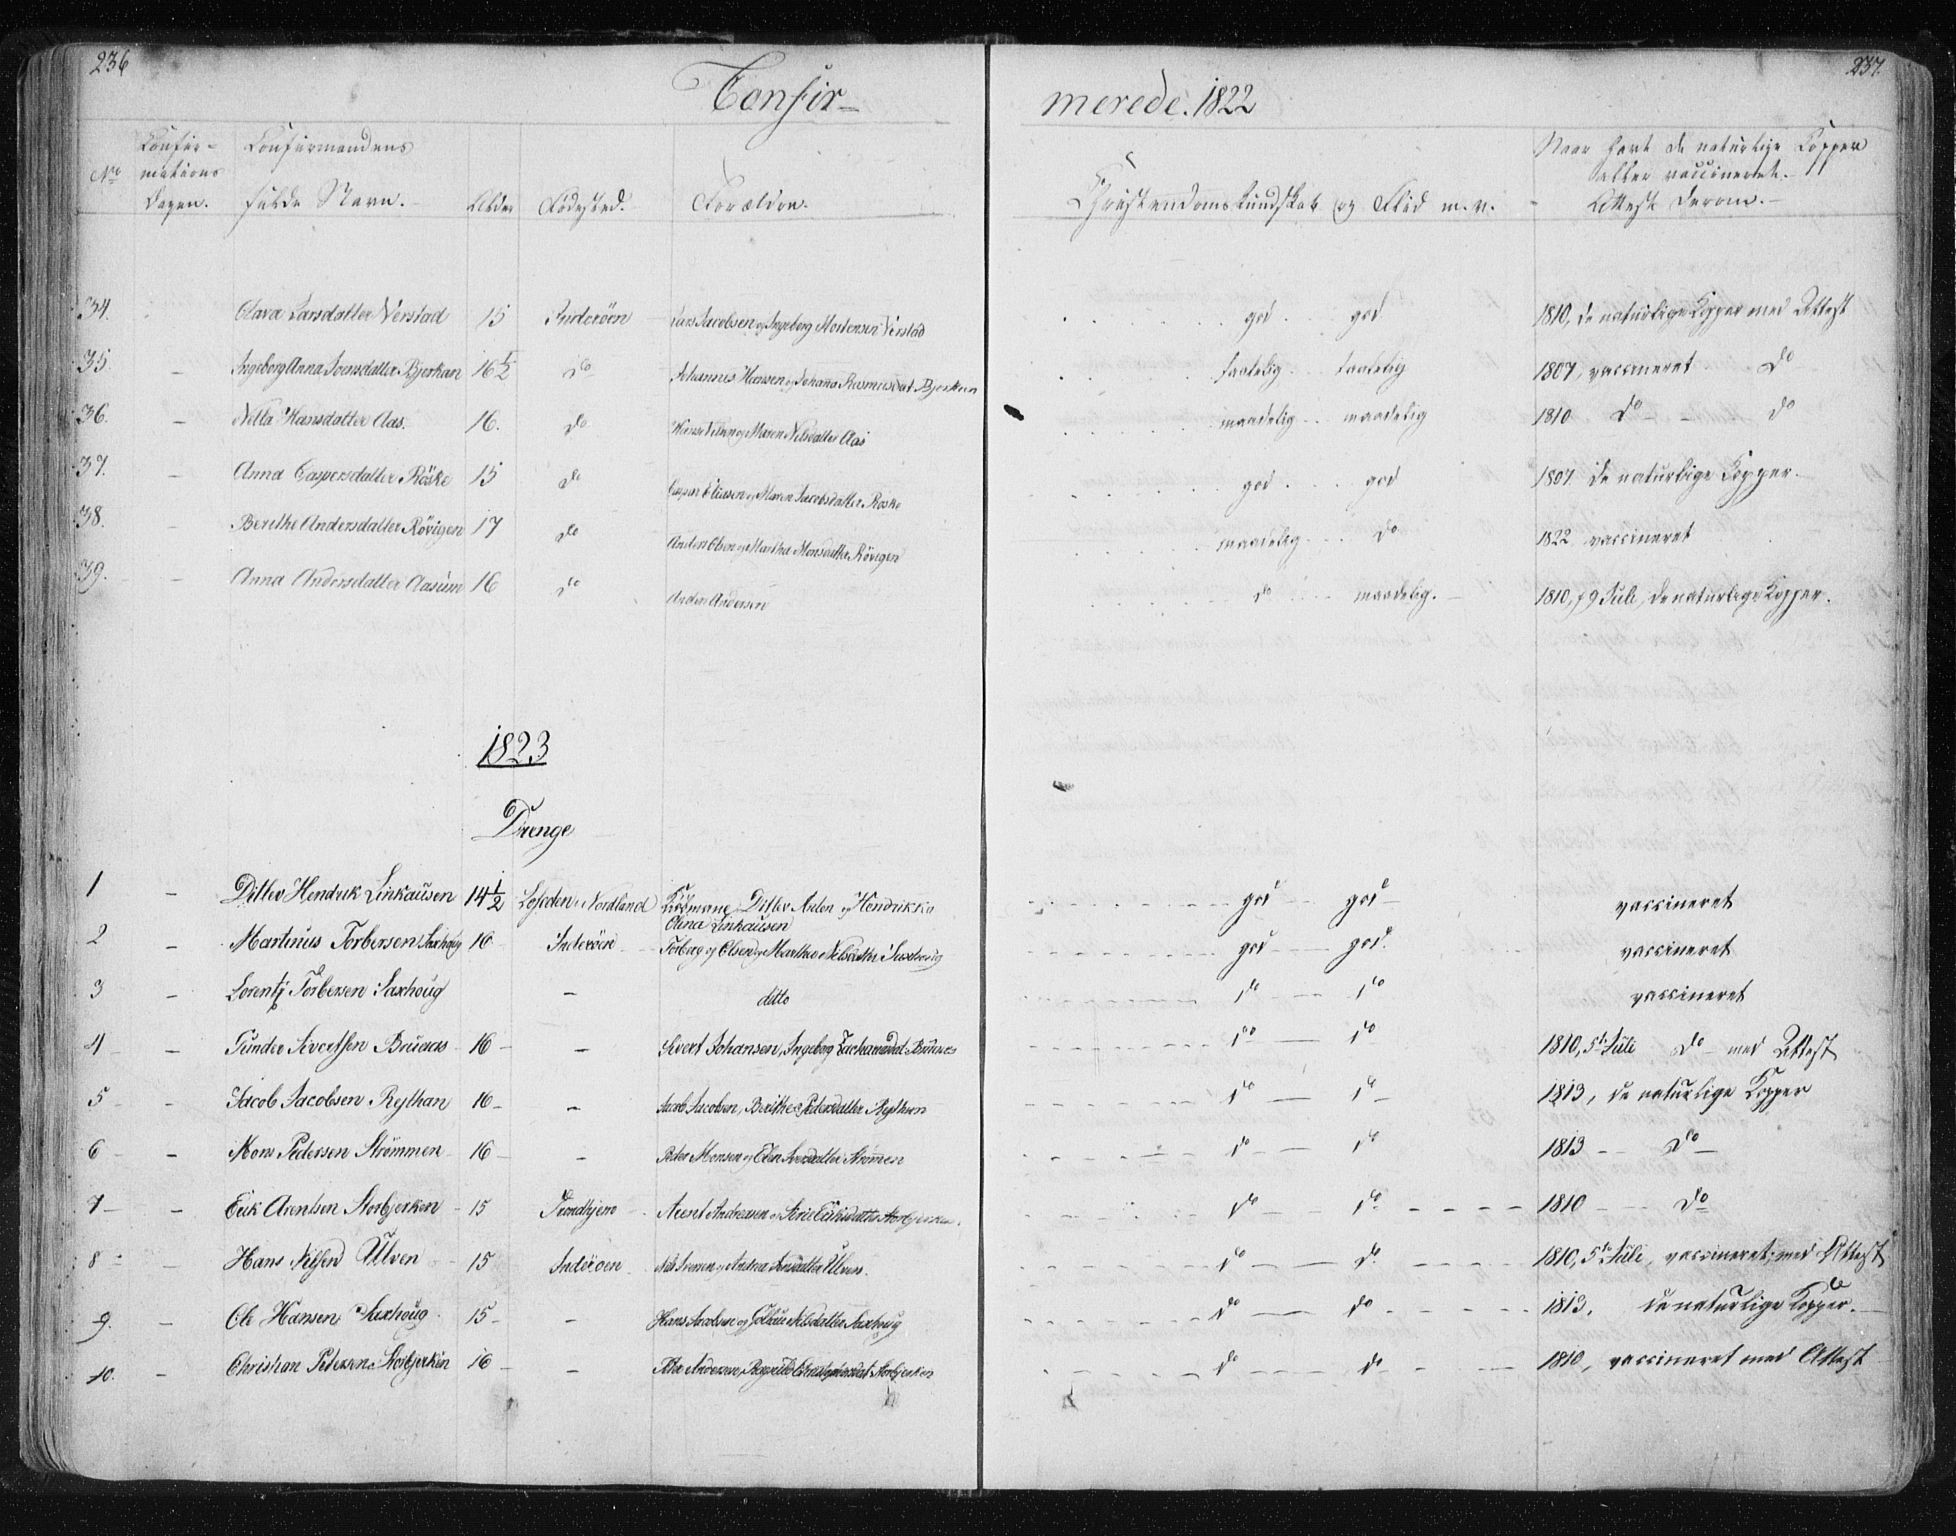 236
237.
Confir- merede. 1822
No
Confir-
mations
Dagen.
Confirmandens
fulde Navn.
Alder
Fødested.
Forældre.
Christendoms Kundskab og Flid m. v.
Naar havt de naturlige Kopper
eller vaccineret.
Attest derom.
34. Clara Larsdatter Verstad 15 Inderöen Lars Jacobsen og Ingeborg Mortensen Verstad god god 1810, de naturlige Kopper med Attest
35. - Ingeborg Anna Joensdatter Bjerkan 16 1/2 do Johannes Hansen og Johana Rasmusdat. Bjerkan taalelig taalelig 1807, vaccineret do
36. - Nella Hansdatter Aas. 16. do Maren Nilsdatter Aas maadelig maadelig 1810 do - do
37. Anna Caspersdatter Röske 15 do Casper Eliassen og Maren Jacobsdatter Roske god god 1807 de naturlige Kopper.
38. - Berethe Andersdatter Rövigen 17 do Anders Olsen og Martha Monsdatter Rövigen maadelig do 1822 vaccineret
39. - Anna Andersdatter Aasum 16 do Anders Andersen do maadelig. 1810, 9 Juli, de naturlige Kopper.
1823
Drenge
1 - Ditlev Hendrik Linkausen 14 1/2 Lofoden i Nordland Ditlev Anton og Hendrikka
Olina Linkausen god god vaccineret
2 - Martinus Torbersen Saxhoug 16 Inderöen Torberg Olsen og Marthe Nilsdatter Saxhoug god god. vaccineret
3 - Lorentz Torbersen Saxhoug - ditto do do vaccineret
4 - Gunder Sivertsen Bruaas 16 - Sivert Johansen, Ingeborg Zachariasdat Bruaas do do 1810, 5te Juli do med Attest
5 - Jacob Jacobsen Rejthan 16 - Jacob Jacobsen, Berithe Pedersdatter Rejthan do do 1813, de naturlige Kopper
6 - Mons Pedersen Strömmen 16 - Peder Monsen og Elen Iversdatter Strömmen do do 1813 - do
7 - Erik Arentsen Storbjerken 15 Trondhjem Arent Andreasen og Siri Eriksdatter Storbjerken. do do 1810 - do
8 - Hans Nilsen Ulven 15 Inderoen Nils Iversen og Andrea Iversdatter Ulven. do do. 1810, 5te Juli, vaccineret, med Attest
9. - Ole Hansen Saxhoug 15 - Hans Jacobsen og Nilsdatter Saxhoug do do 1813, de naturlige Kopper.
10. - Christian Petersen Storbjerken 16 - Peter Andersen, Storbjerken do do 1810, vaccineret med Attest